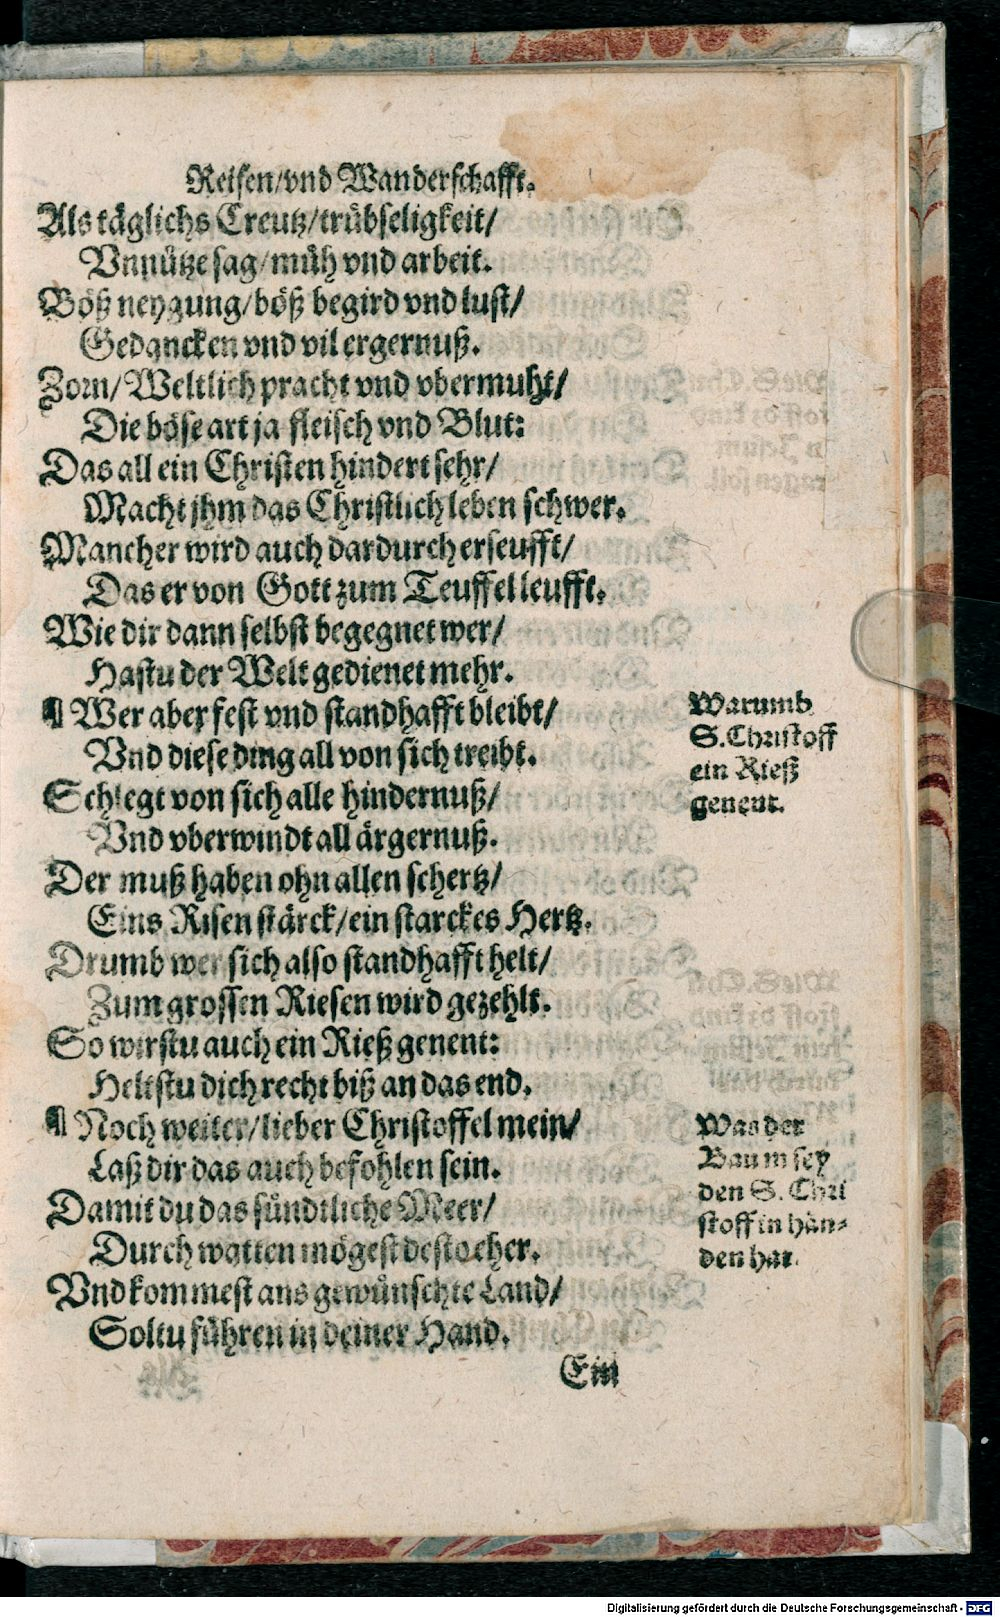 Reisen/vnd Wanderschafft.
Als täglichs Creutz/trübseligkeit/
Vnnütze sag/müh vnd arbeit.
Böß neygung/böß begird vnd lust/
Gedancken vnd vil ergernuß.
Zorn/Weltlich pracht vnd vbermuht/
Die böse art ja fleisch vnd Blut:
Das all ein Christen hindert sehr/
Macht jhm das Christlich leben schwer.
Mancher wird auch dardurch erseufft/
Das er von Gott zum Teuffel leufft.
Wie dir dann selbst begegnet wer/
Hastu der Welt gedienet mehr.
¶ Wer aber fest vnd standhafft bleibt/
Vnd diese ding all von sich treibt.
Schlegt von sich alle hindernuß/
Vnd vberwindt all ärgernuß.
Der muß haben ohn allen schertz/
Eins Risen stärck/ein starckes Hertz.
Drumb wer sich also standhafft helt/
Zum grossen Riesen wird gezehlt.
So wirstu auch ein Rieß genent:
Heltstu dich recht biß an das end.
¶ Noch weiter/lieber Christoffel mein/
Laß dir das auch befohlen sein.
Damit du das sündtliche Meer/
Durch watten mögest desto eher.
Vnd kommest ans gewünschte Land/
Soltu führen in deiner Hand.
Ein
Warumb
S. Christoff
ein Rieß
genent.
Was der
Baum sey
den S. Chri
stoff in hän-
den hat.
Digitalisierung gefördert durch die Deutsche Forschungsgemeinschaft - DFG